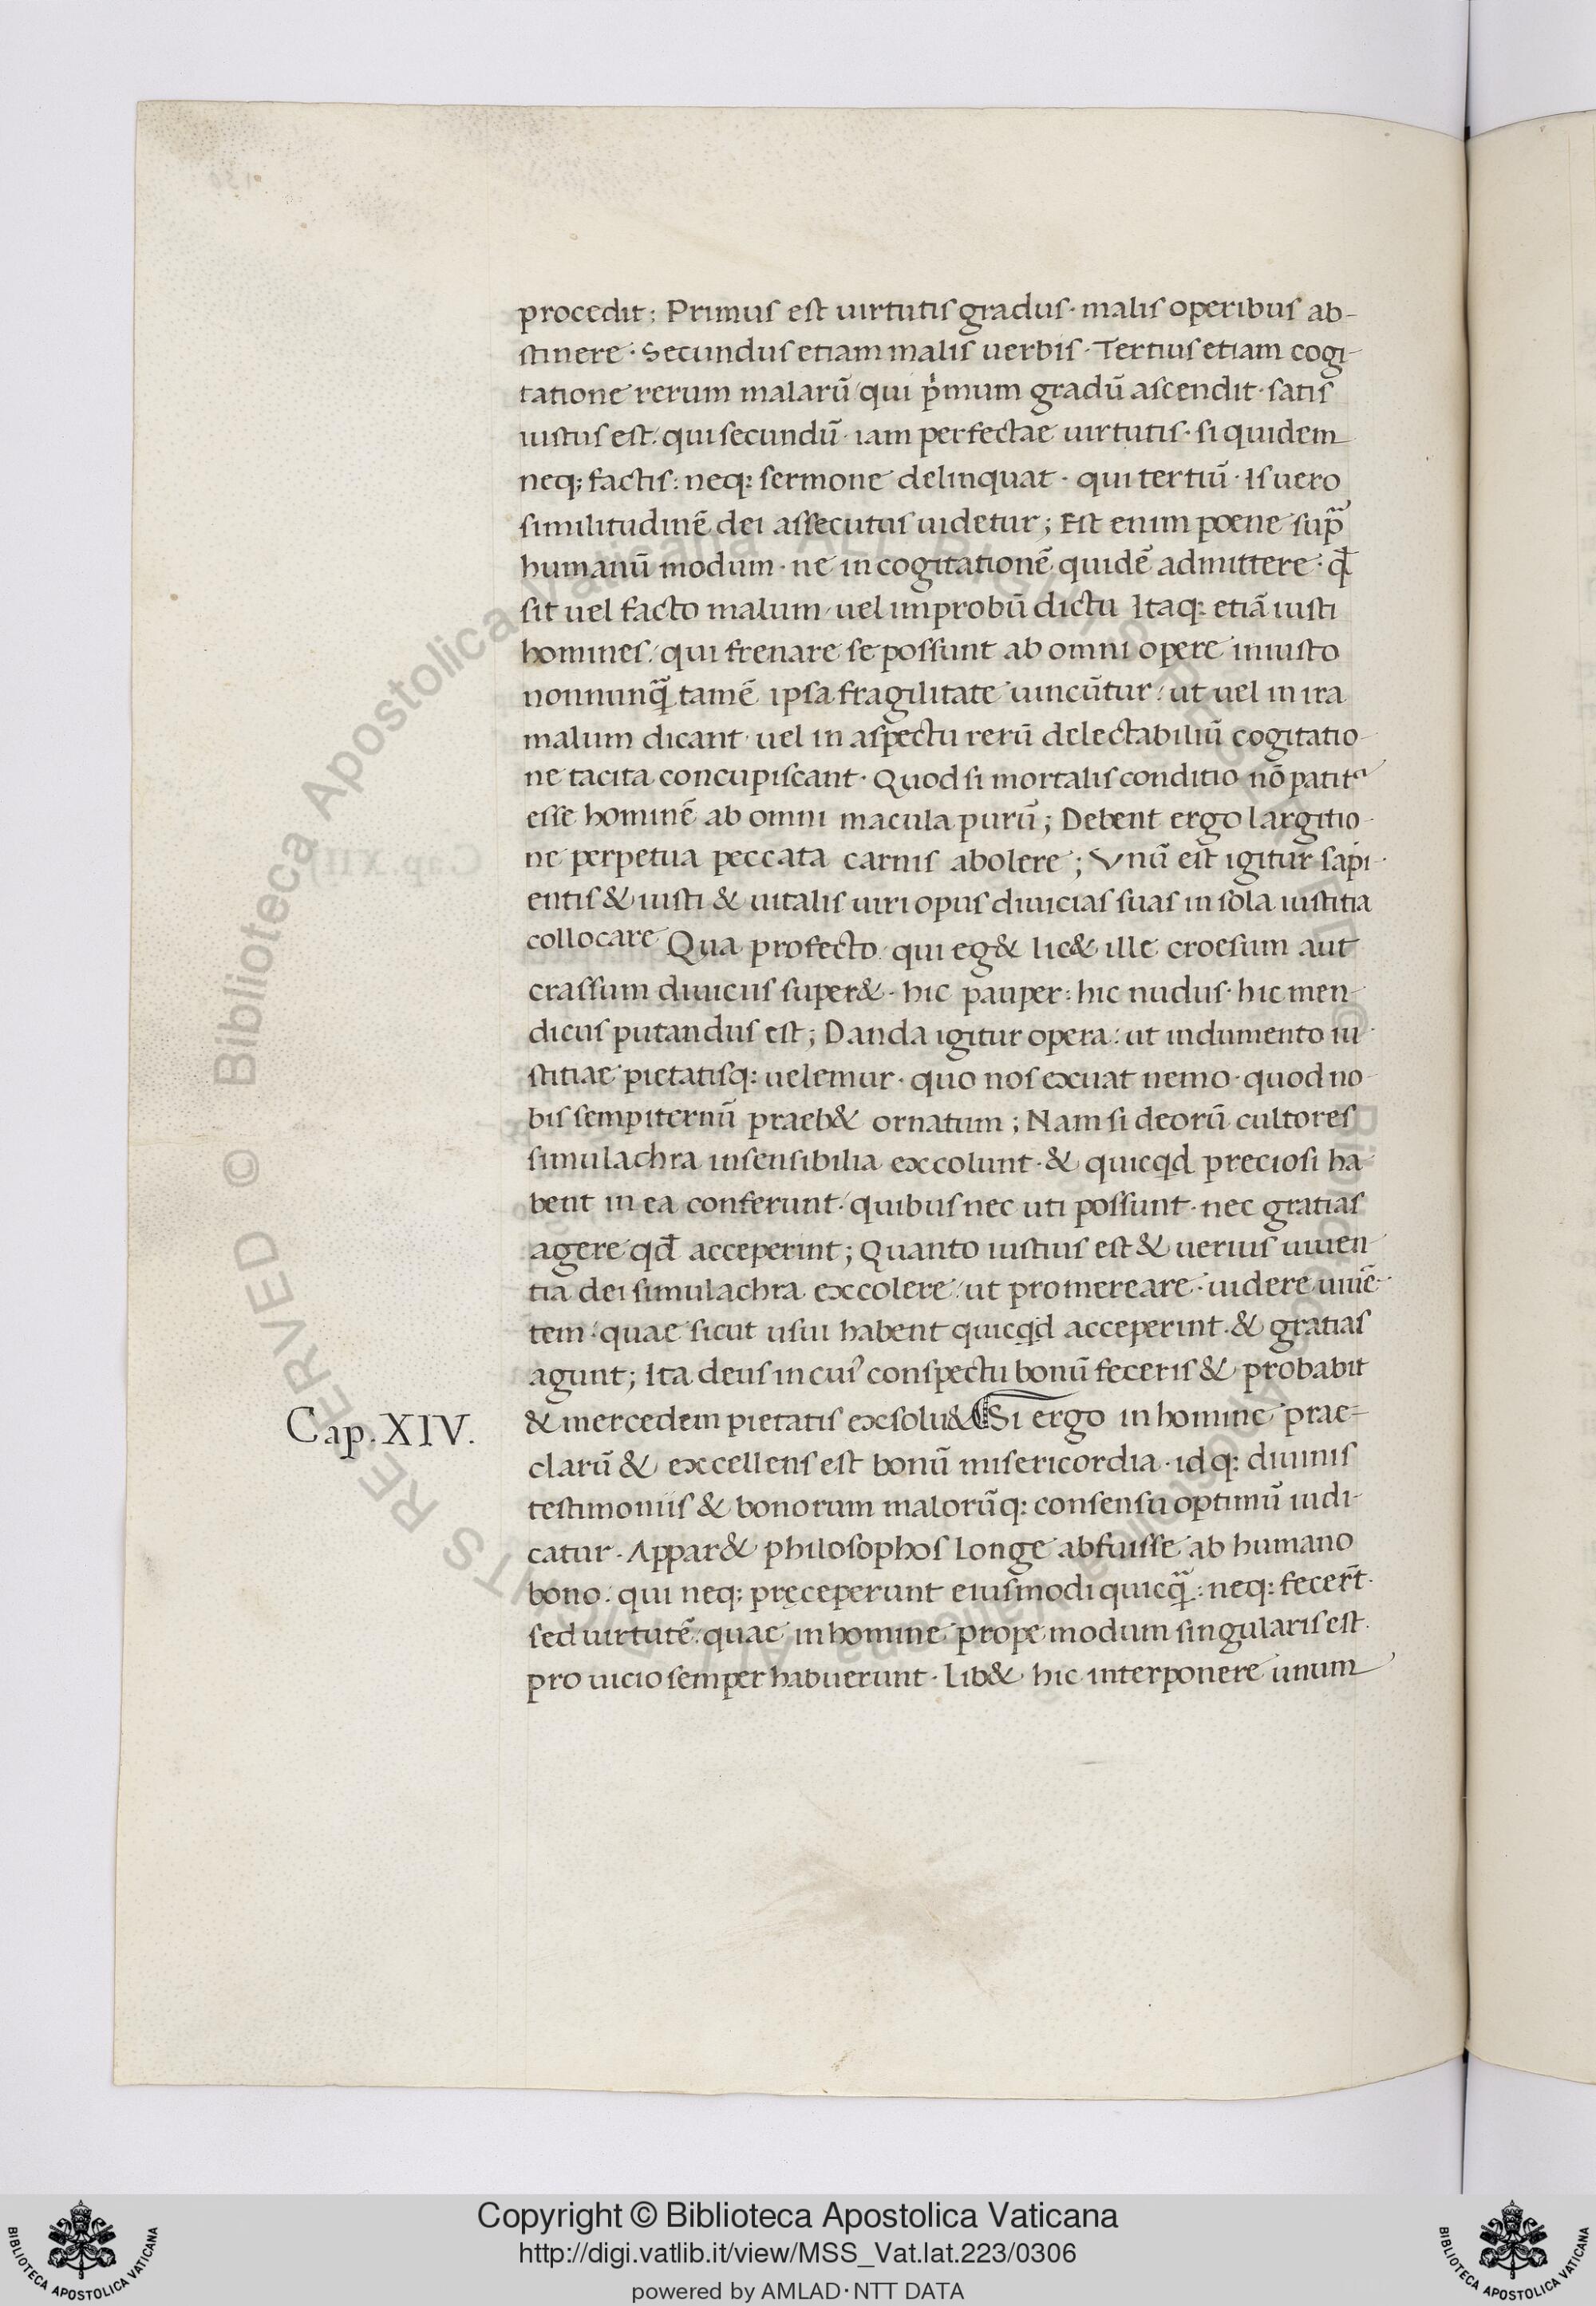 procedit; Primus est uirtutis gradus· malis operibus ab-
stinere· Secundus etiam malis uerbis· Tertius etiam cogi-
tatione rerum malarū/ qui p̍mum gradū ascendit· satis
iustus est/ qui secundū· iam perfectae uirtutis· si quidem
neq; factis: neq: sermone delinquat· qui tertiū· Is uero
similitudinē dei assecutus uidetur; Est enim poene sup̄
humanū modum· ne in cogitationē quidē admittere· qđ
sit uel facto malum/ uel improbū dictu Itaq: etiā iusti
homines/ qui frenare se possunt ab omni opere iniusto
nonnunq̄ tamē ipsa fragilitate uincūtur: ut uel in ira
malum dicant· uel in aspectu rerū delectabiliū cogitatio-
ne tacita concupiscant· Quod si mortalis conditio nō patit᷑
esse hominē ab omni macula purū; Debent ergo largitio-
ne perpetua peccata carnis abolere; Vnū est igitur sapi-
entis & iusti & uitalis uiri opus diuicias suas in sola iustitia
collocare Qua profecto qui eg& lic& ille croesum aut
crassum diuiciis super&· hic pauper: hic nudus· hic men-
dicus putandus est; Danda igitur opera: ut indumento iu-
stitiae pietatisq: uelemur· quo nos exuat nemo· quod no-
bis sempiternū praeb& ornatum; Nam si deorū cultores
simulachra insensibilia excolunt· & quicqd preciosi ha-
bent in ea conferunt/ quibus nec uti possunt· nec gratias
agere qđ acceperint; Quanto iustius est & uerius uiuen-
tia dei simulachra excolere/ ut promereare· uidere uiuē-
tem· quae sicut usui habent quicqd acceperint· & gratias
agunt; Ita deus in cui᾽ conspectu bonū feceris & probabit
Cap. XIV.
& mercedem pietatis exsolu& Si ergo in homine prae-
clarū & excellens est bonū misericordia· idq: diuinis
testimoniis & bonorum malorūq: consensu optimū iudi-
catur· Appar& philosophos longe abfuisse ab humano
bono: qui neq; pręceperunt eiusmodi quicq̄: neq: fecer̄t·
sed uirtutē/ quae in homine prope modum singularis est
pro uicio semper habuerunt· Lib& hic interponere unum
Copyright © Biblioteca Apostolica Vaticana
http://digi.vatlib.it/view/MSS_Vat.lat.223/0306
powered by AMLAD·NTT DATA
BIBLIOTECA APOSTOLICA VATICANA
BIBLIOTECA APOSTOLICA VATICANA